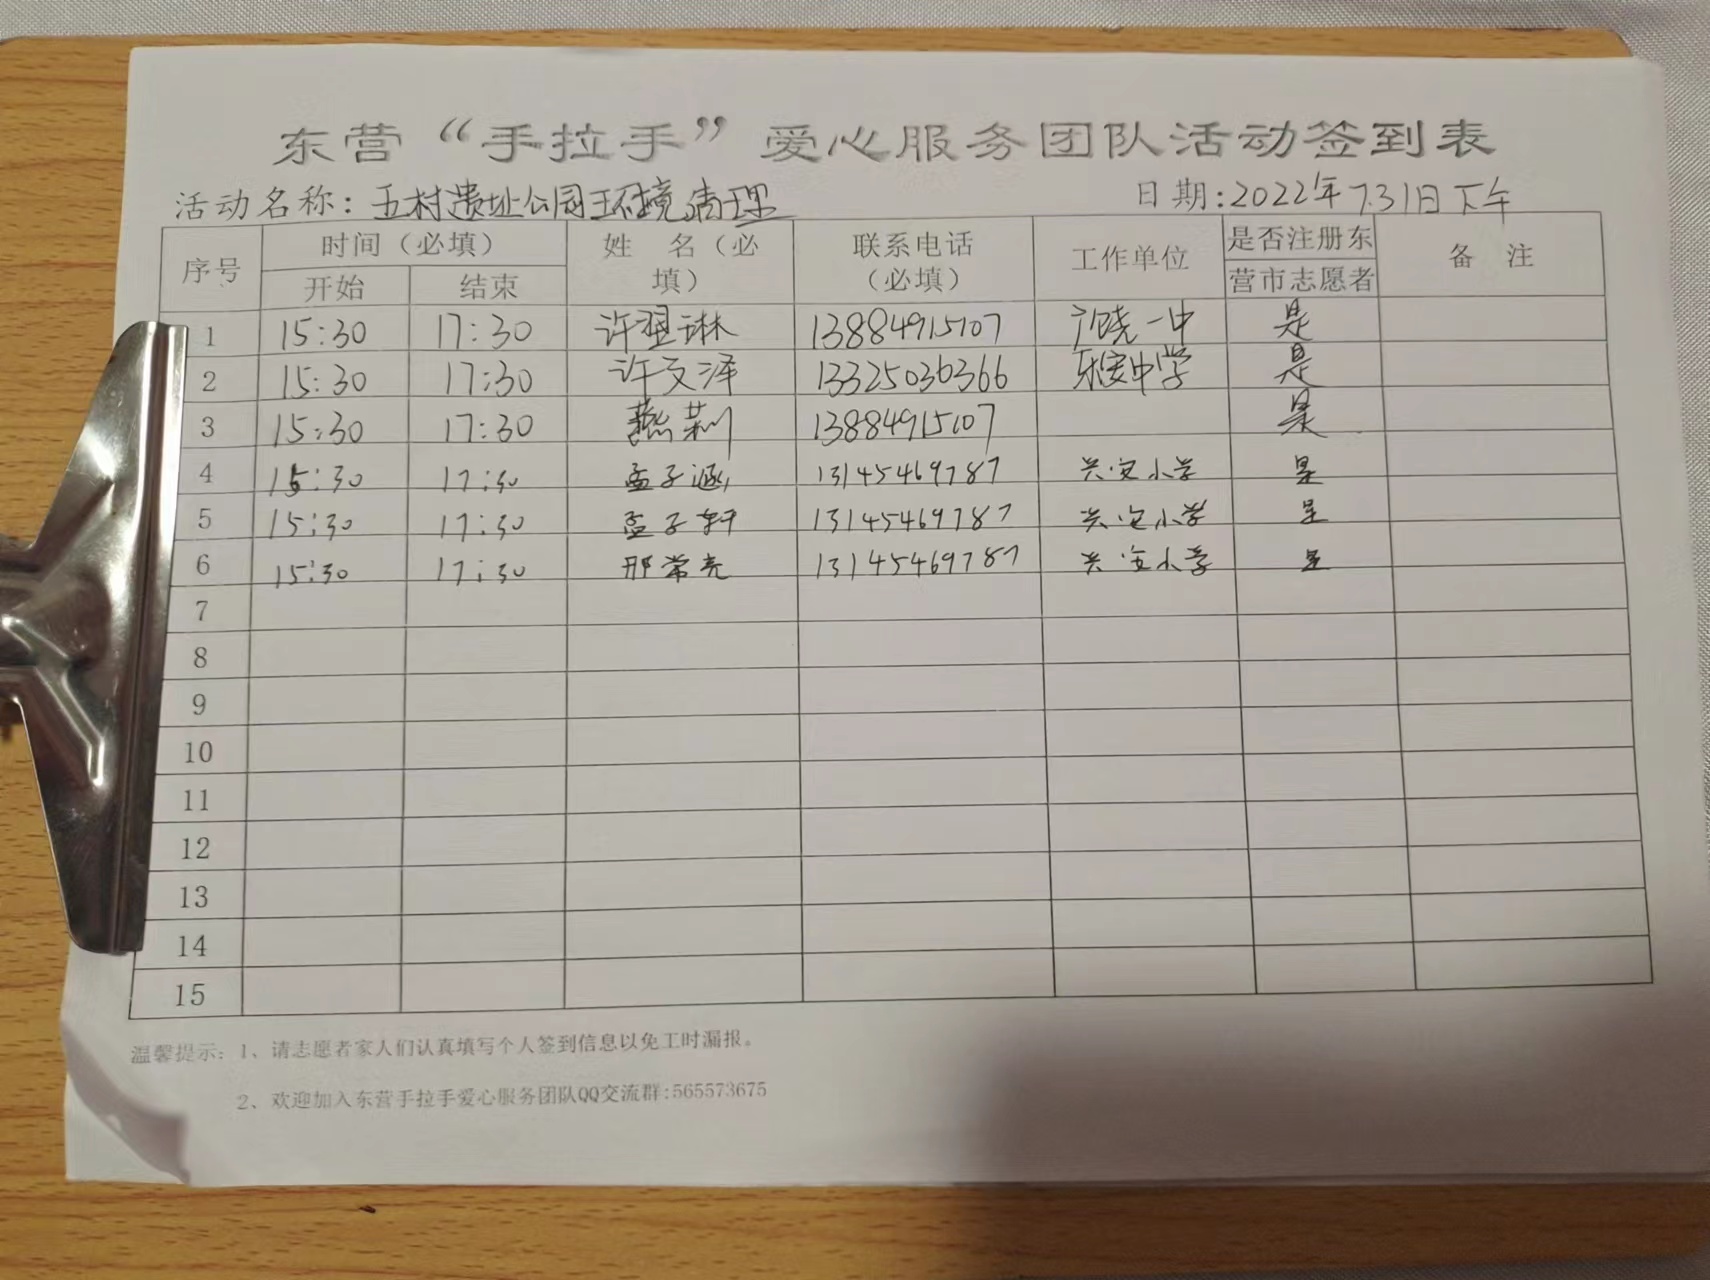 东营“手拉手”爱心服务团队活动签到表
活动名称：五村遗址公园环境清理 日期：2022年7.31日下午
序号 时间（必填） 姓 名（必填） 联系电话（必填） 工作单位 是否注册东营市志愿者 备 注
开始 结束
1 15:30 17:30 许翌琳 13884915107 广饶一中 是
2 15:30 17:30 许文泽 13325036366 乐安中学 是
3 15:30 17:30 燕莉 13884915107 是
4 15:30 17:30 孟子涵 13145469787 兴安小学 是
5 15:30 17:30 孟子轩 13145469787 兴安小学 是
6 15:30 17:30 邢常亮 13145469787 兴安小学 是
7
8
9
10
11
12
13
14
15
温馨提示：1、请志愿者家人们认真填写个人签到信息以免工时漏报。
2、欢迎加入东营手拉手爱心服务团队QQ交流群:565573675